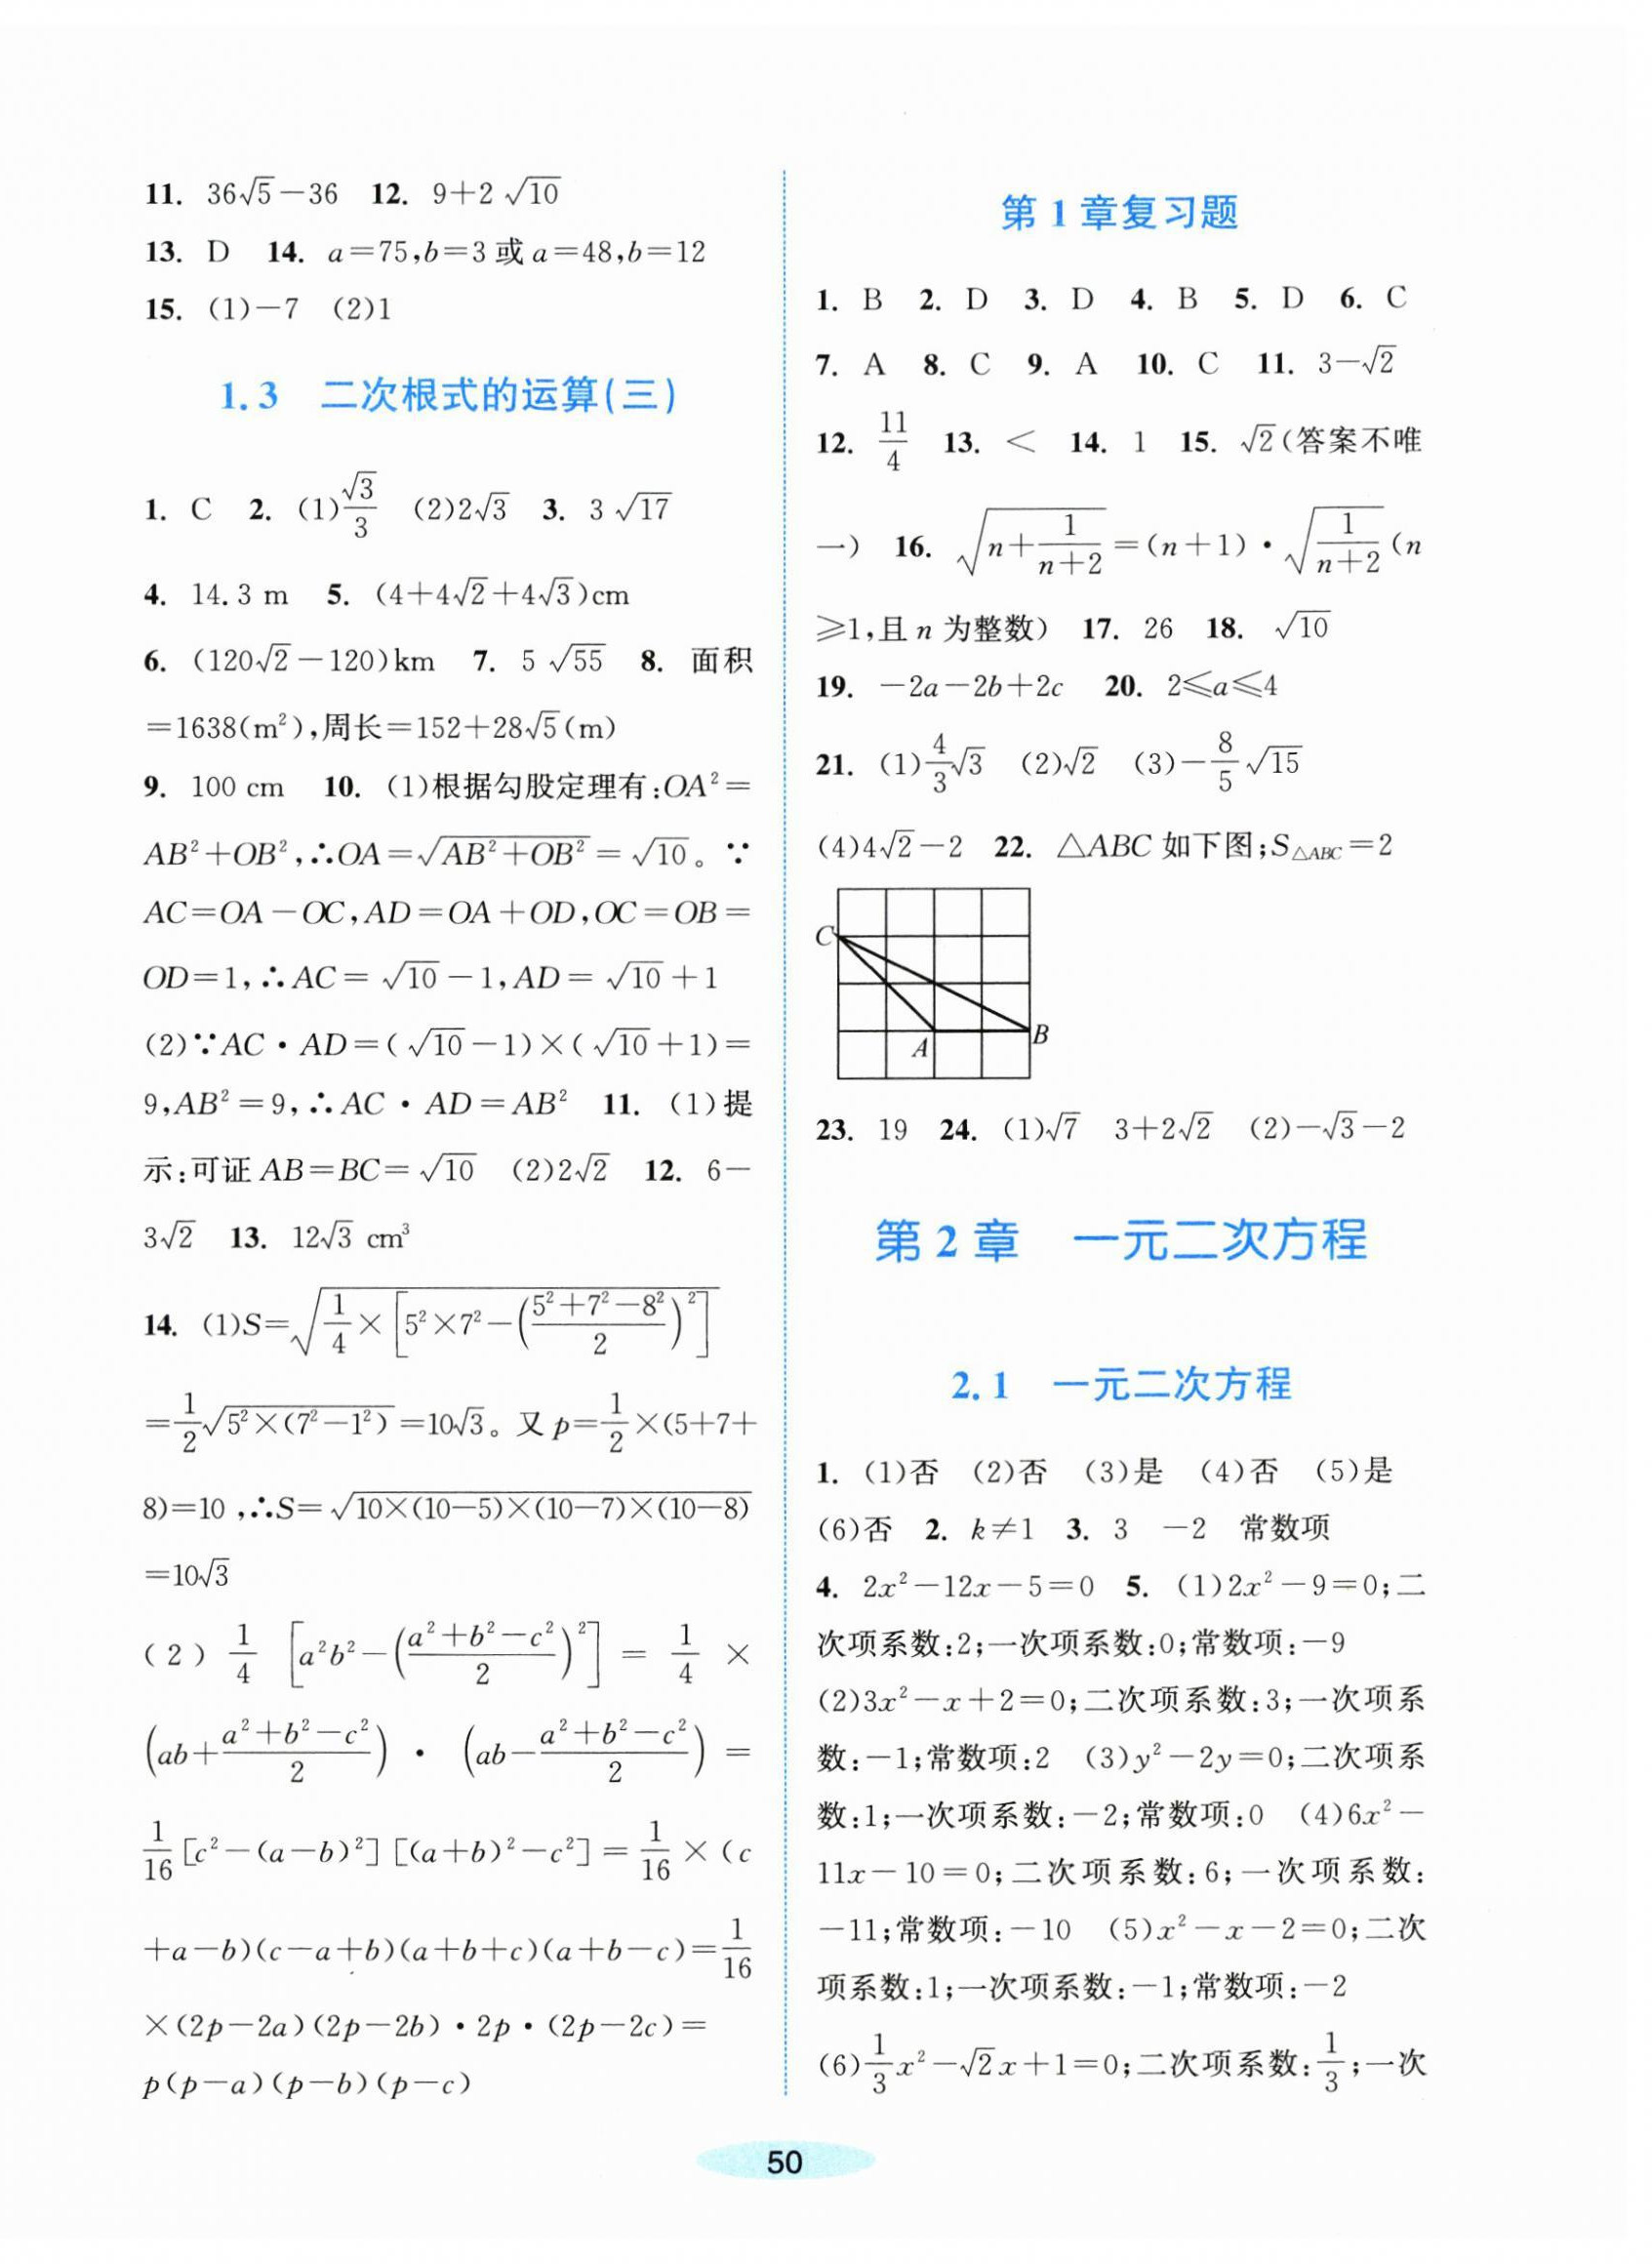 11. 36√5－36　12. 9＋2√10
13. D　14. a＝75,b＝3或a＝48,b＝12
15. (1)－7　(2)1
1.3　二次根式的运算(三)
1. C　2. (1)√3/3　(2)2√3　3. 3√17
4. 14.3 m　5. (4＋4√2＋4√3)cm
6. (120√2－120)km　7. 5√55　8. 面积
＝1638(m²),周长＝152＋28√5(m)
9. 100 cm　10. (1)根据勾股定理有:OA²＝
AB²＋OB²,∴OA＝√(AB²＋OB²)＝√10。∵
AC＝OA－OC,AD＝OA＋OD,OC＝OB＝
OD＝1,∴AC＝√10－1,AD＝√10＋1
(2)∵AC·AD＝(√10－1)×(√10＋1)＝
9,AB²＝9,∴AC·AD＝AB²　11. (1)提
示:可证AB＝BC＝√10　(2)2√2　12. 6－
3√2　13. 12√3 cm³
14. (1)S＝√(1/4×[5²×7²－((5²＋7²－8²)/2)²])
＝1/2√(5²×(7²－1²))＝10√3。又p＝1/2×(5＋7＋
8)＝10,∴S＝√(10×(10－5)×(10－7)×(10－8))
＝10√3
(2) 1/4[a²b²－((a²＋b²－c²)/2)²]＝1/4×
(ab＋(a²＋b²－c²)/2)·(ab－(a²＋b²－c²)/2)＝
1/16[c²－(a－b)²][(a＋b)²－c²]＝1/16×(c
＋a－b)(c－a＋b)(a＋b＋c)(a＋b－c)＝1/16
×(2p－2a)(2p－2b)·2p·(2p－2c)＝
p(p－a)(p－b)(p－c)
第1章复习题
1. B　2. D　3. D　4. B　5. D　6. C
7. A　8. C　9. A　10. C　11. 3－√2
12. 11/4　13. ＜　14. 1　15. √2(答案不唯
一)　16. √(n＋1/(n＋2))＝(n＋1)·√(1/(n＋2))(n
≥1,且n为整数)　17. 26　18. √10
19. －2a－2b＋2c　20. 2≤a≤4
21. (1)4/3√3　(2)√2　(3)－8/5√15
(4)4√2－2　22. △ABC如下图;S△ABC＝2
C
A
B
23. 19　24. (1)√7　3＋2√2　(2)－√3－2
第2章　一元二次方程
2.1　一元二次方程
1. (1)否　(2)否　(3)是　(4)否　(5)是
(6)否　2. k≠1　3. 3　－2　常数项
4. 2x²－12x－5＝0　5. (1)2x²－9＝0;二
次项系数:2;一次项系数:0;常数项:－9
(2)3x²－x＋2＝0;二次项系数:3;一次项系
数:－1;常数项:2　(3)y²－2y＝0;二次项系
数:1;一次项系数:－2;常数项:0　(4)6x²－
11x－10＝0;二次项系数:6;一次项系数:
－11;常数项:－10　(5)x²－x－2＝0;二次
项系数:1;一次项系数:－1;常数项:－2
(6)1/3x²－√2x＋1＝0;二次项系数:1/3;一次
50